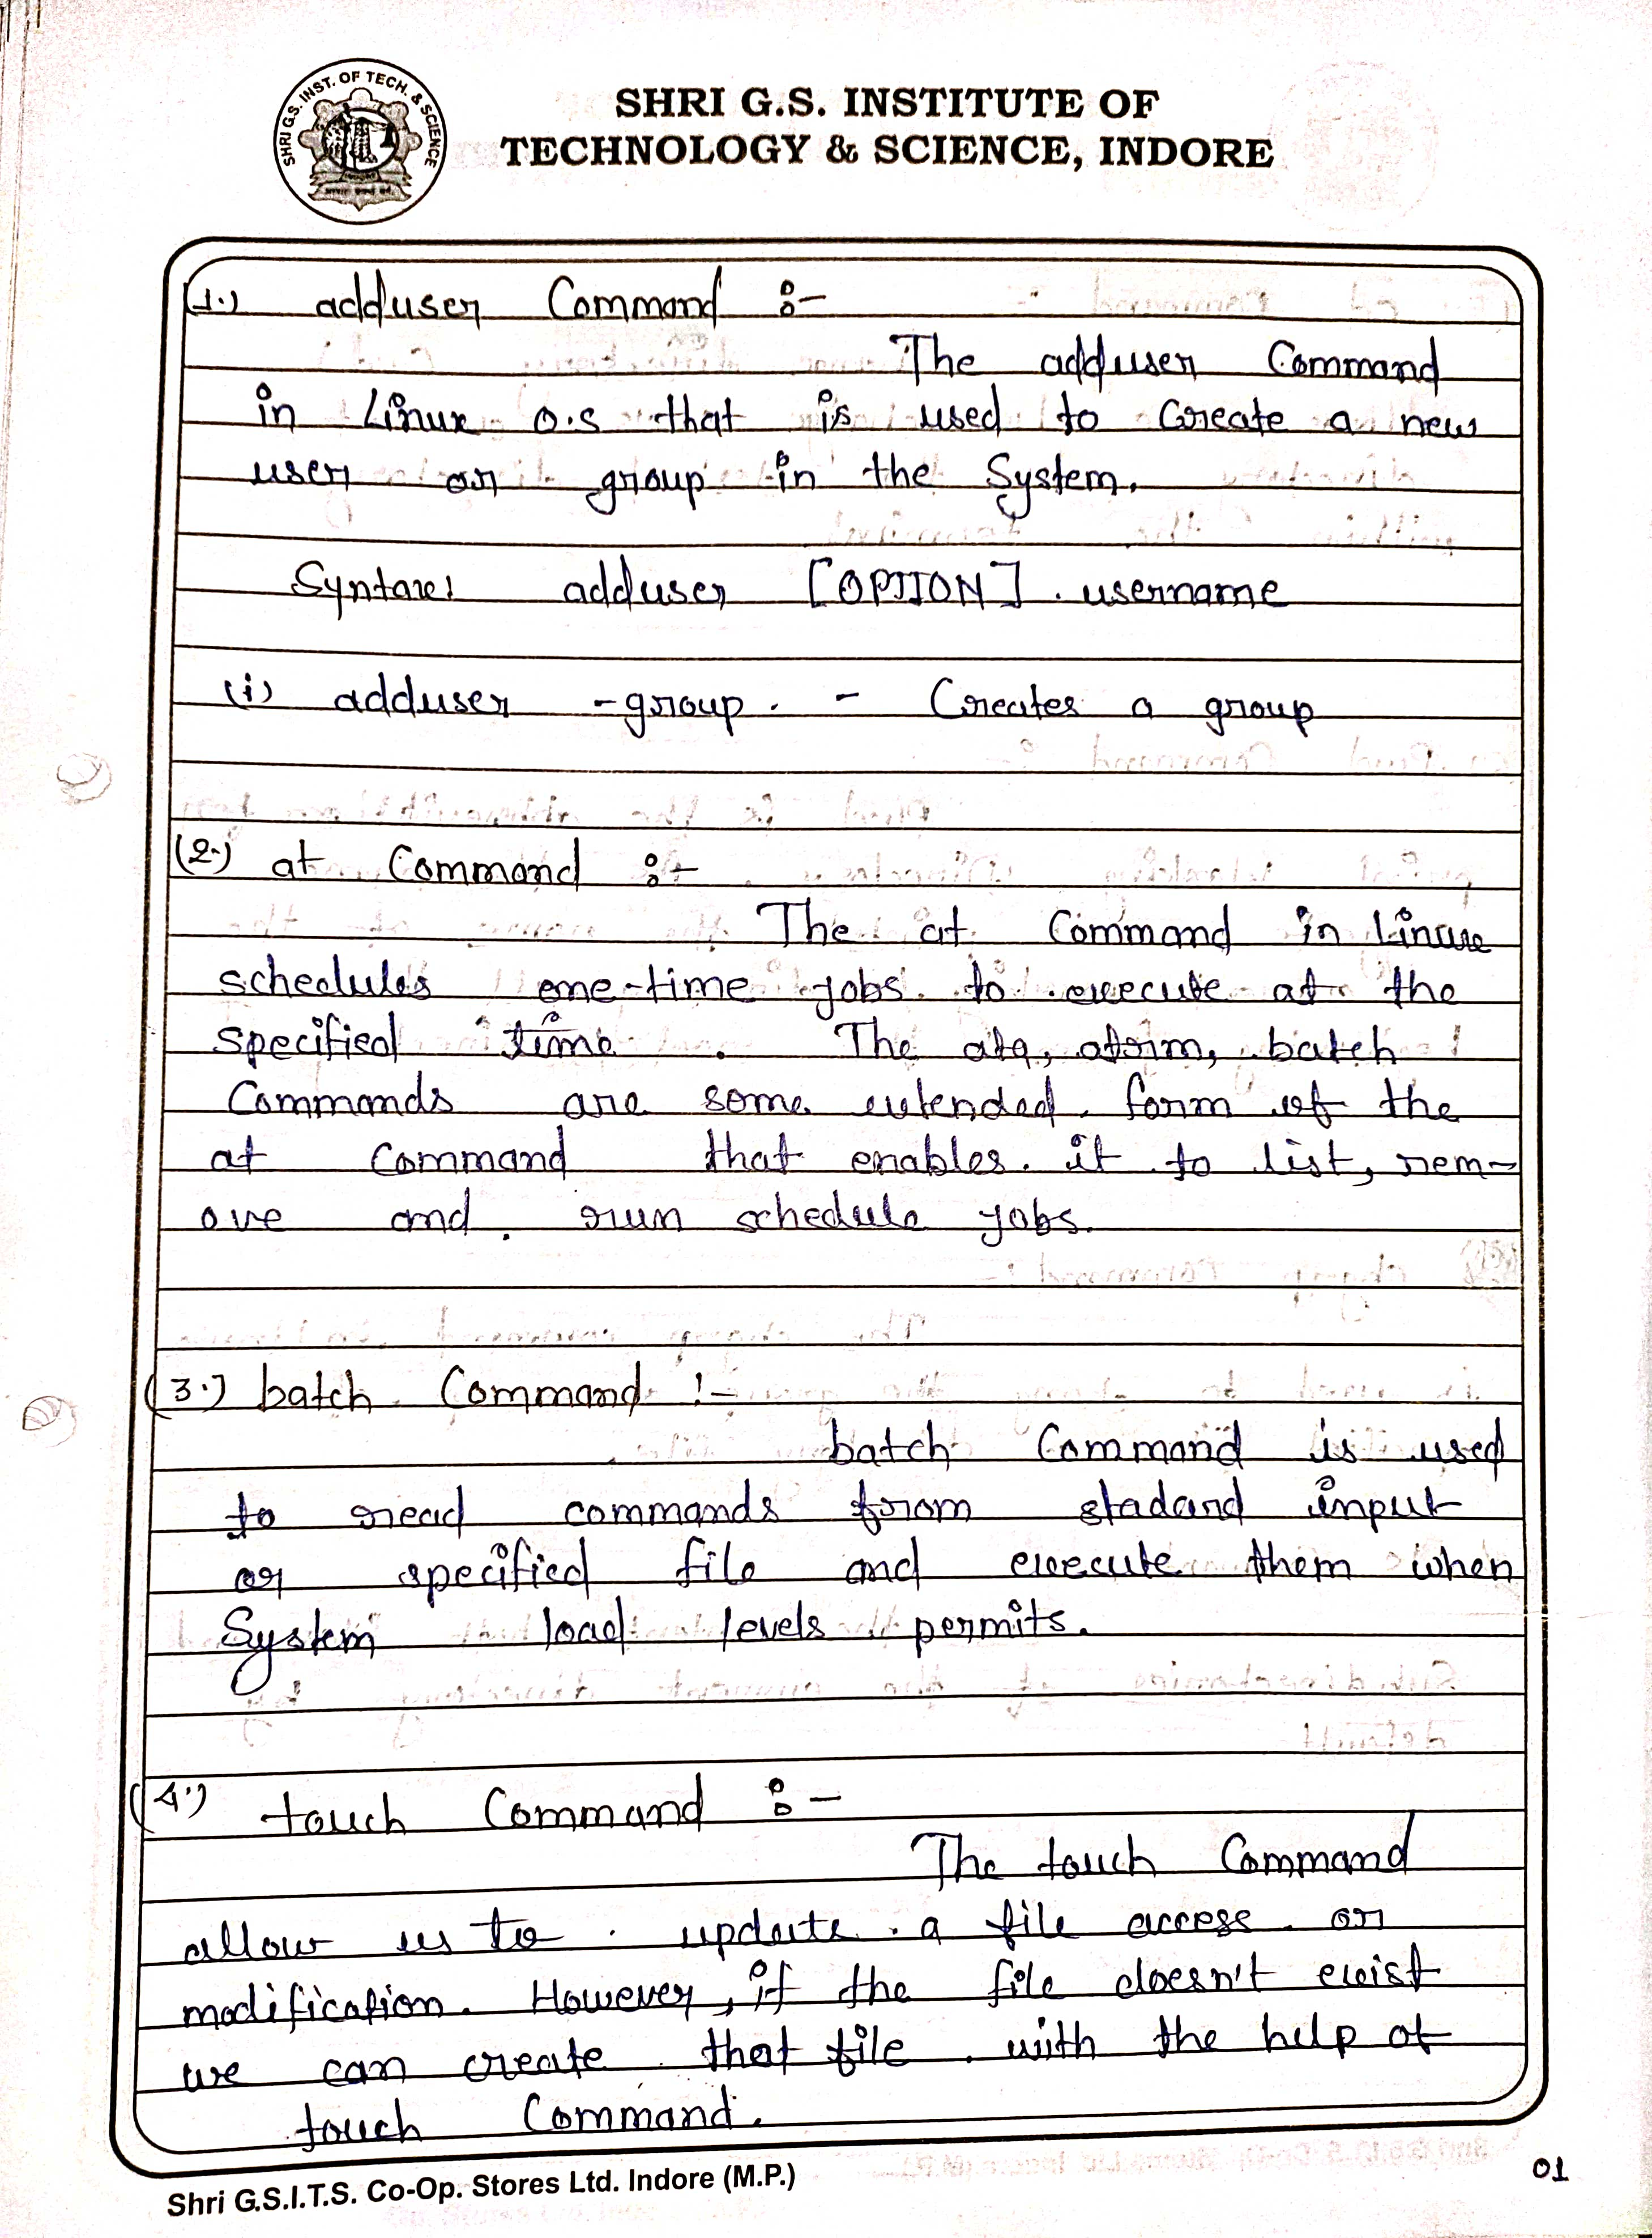 SHRI G.S. INST. OF TECH. & SCIENCE
SHRI G.S. INSTITUTE OF
TECHNOLOGY & SCIENCE, INDORE
(1.) adduser Command :-
The adduser Command
in Linux O.S that is used to Create a new
user or group in the System.
Syntax: adduser [OPTION] username
(i) adduser -group - Creates a group
(2.) at Command :-
The at Command in Linux
schedules one-time jobs to execute at the
specified time. The atq, atrm, batch
Commands are some extended form of the
at Command that enables it to list, rem-
ove and run schedule jobs.
(3.) batch Command :-
batch Command is used
to read commands from stadard input
or specified file and execute them when
System load levels permits.
(4.) touch Command :-
The touch Command
allow us to update a file access or
modification. However, if the file doesn't exist
we can create that file with the help of
touch Command.
Shri G.S.I.T.S. Co-Op. Stores Ltd. Indore (M.P.)
01